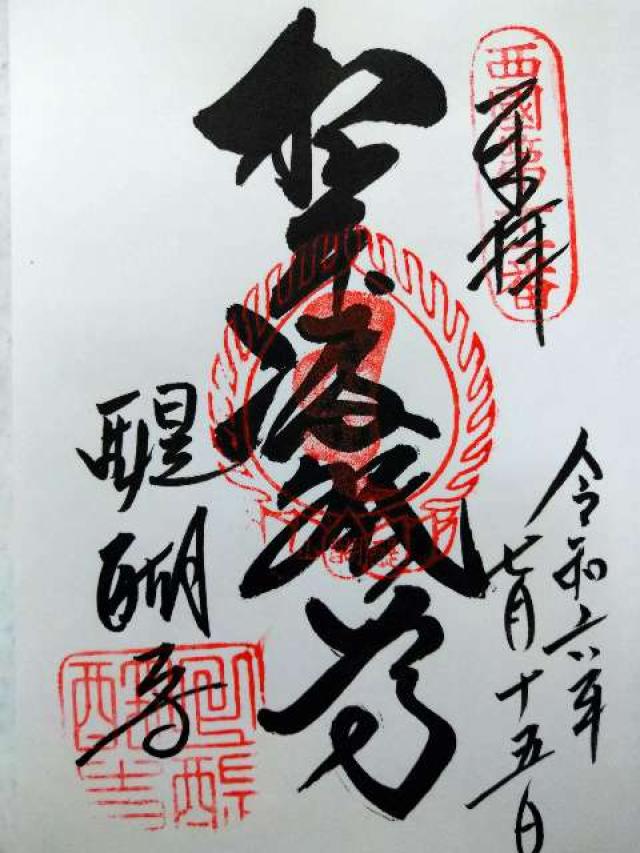 西國第十一番
奉拝
令和六年
七月十五日
根本准胝尊
醍醐寺